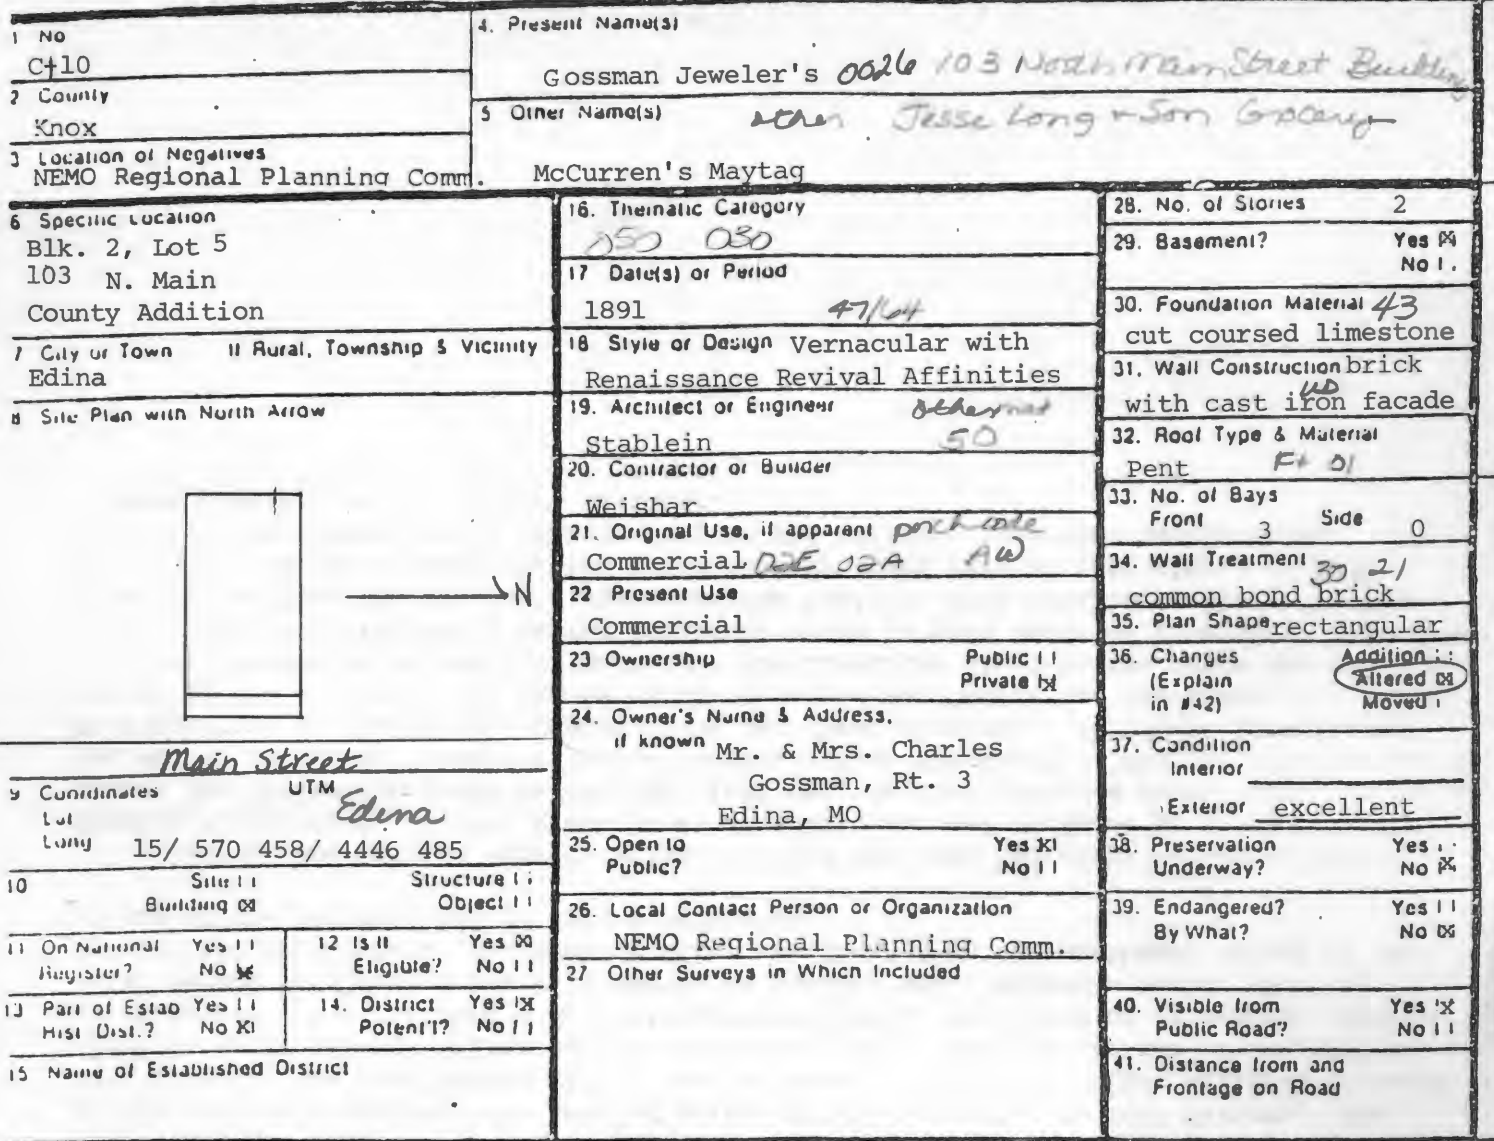 1 No
C+10
2 County
Knox
3 Location of Negatives
NEMO Regional Planning Comm.
4. Present Name(s)
Gossman Jeweler's 0026 103 North Main Street Building
5 Other Name(s) other Jesse Long + Son Grocery
McCurren's Maytag
6 Specific Location
Blk. 2, Lot 5
103 N. Main
County Addition
7 City or Town If Rural, Township & Vicinity
Edina
8 Site Plan with North Arrow
N
Main Street
9 Coordinates UTM
Lat Edina
Long 15/ 570 458/ 4446 485
10 Site Structure
Building ☒ Object
11 On National Register? Yes No ☒
12 Is It Eligible? Yes ☒ No
13 Part of Estab Hist Dist.? Yes No ☒
14. District Potent'l? Yes ☒ No
15 Name of Established District
16. Thematic Category
050 030
17 Date(s) or Period
1891 47/64
18 Style or Design Vernacular with
Renaissance Revival Affinities
19. Architect or Engineer other
Stablein 50
20. Contractor or Builder
Weishar
21. Original Use, if apparent porch code
Commercial 02E 02A AW
22 Present Use
Commercial
23 Ownership Public
Private ☒
24. Owner's Name & Address,
if known Mr. & Mrs. Charles
Gossman, Rt. 3
Edina, MO
25. Open to Yes ☒
Public? No
26. Local Contact Person or Organization
NEMO Regional Planning Comm.
27 Other Surveys in Which Included
28. No. of Stories 2
29. Basement? Yes ☒
No
30. Foundation Material 43
cut coursed limestone
31. Wall Construction brick
with cast iron facade
32. Roof Type & Material
Pent Ft 01
33. No. of Bays
Front 3 Side 0
34. Wall Treatment 30 21
common bond brick
35. Plan Shape rectangular
36. Changes Addition
(Explain Altered ☒
in #42) Moved
37. Condition
Interior
Exterior excellent
38. Preservation Yes
Underway? No ☒
39. Endangered? Yes
By What? No ☒
40. Visible from Yes ☒
Public Road? No
41. Distance from and
Frontage on Road